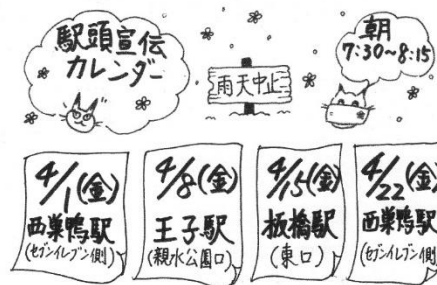 駅頭宣伝
カレンダー
雨天中止
朝
7:30~8:15
4/1(金)
西巣鴨駅
(セブンイレブン側)
4/8(金)
王子駅
(親水公園口)
4/15(金)
板橋駅
(東口)
4/22(金)
西巣鴨駅
(セブンイレブン側)